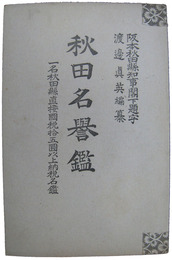 阪本秋田縣知事閣下題字
渡邊眞英編纂
秋田名譽鑑
一名秋田縣直接國税拾五圓以上納税名鑑